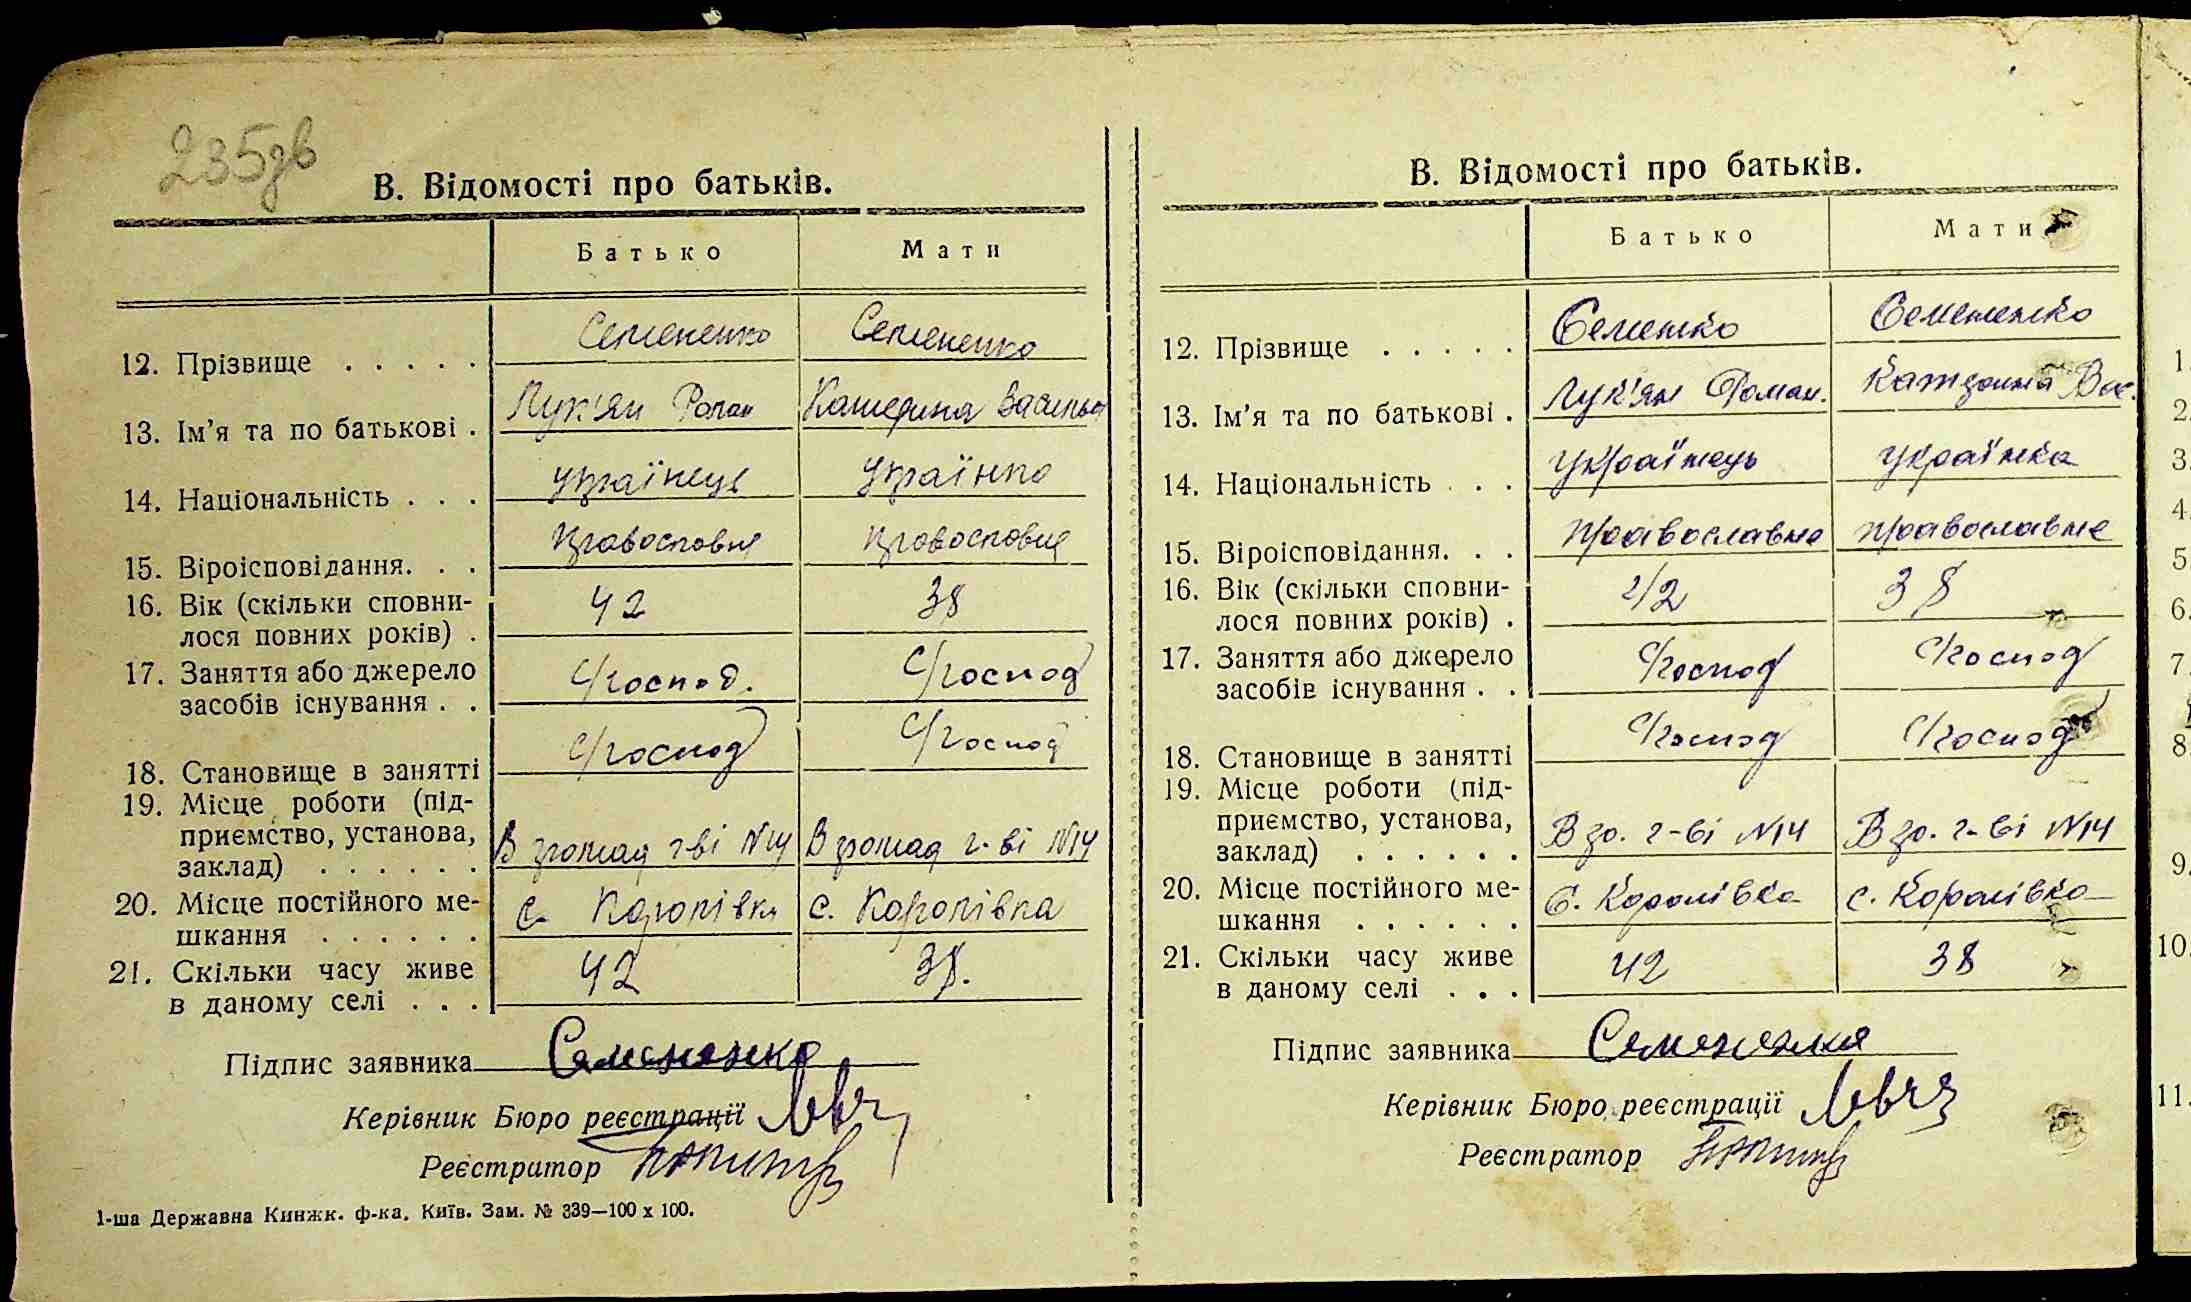 235зв
В. Відомості про батьків.
Батько Мати
12. Прізвище . . . . . Семененко Семененко
13. Ім'я та по батькові . Лук'ян Роман Катерина Васильов
14. Національність . . . українець українка
15. Віроісповідання. . . православне православне
16. Вік (скільки сповни-
лося повних років) . 42 38
17. Заняття або джерело
засобів існування . . С/господ. С/господ
18. Становище в занятті С/господ С/господ
19. Місце роботи (під-
приємство, установа,
заклад) . . . . . . В громад г-ві N14 В громад г-ві N14
20. Місце постійного ме-
шкання . . . . . . с. Королівка с. Королівка
21. Скільки часу живе
в даному селі . . . 42 38.
Підпис заявника Семененко
Керівник Бюро реєстрації
Реєстратор
1-ша Державна Кинжк. ф-ка. Київ. Зам. № 339—100 х 100.
В. Відомості про батьків.
Батько Мати
12. Прізвище . . . . . Семенко Семененко
13. Ім'я та по батькові . Лук'ян Роман. Катерина Вас.
14. Національність . . . українець українка
15. Віроісповідання. . . православне православне
16. Вік (скільки сповни-
лося повних років) . 42 38
17. Заняття або джерело
засобів існування . . С/господ С/господ
18. Становище в занятті С/господ С/господ
19. Місце роботи (під-
приємство, установа,
заклад) . . . . . . В гр. г-ві N14 В гр. г-ві N14
20. Місце постійного ме-
шкання . . . . . . с. Королівка с. Королівка
21. Скільки часу живе
в даному селі . . . 42 38
Підпис заявника Семененко
Керівник Бюро реєстрації
Реєстратор
1.
2.
3.
4.
5.
6.
7.
8.
9.
10.
11.